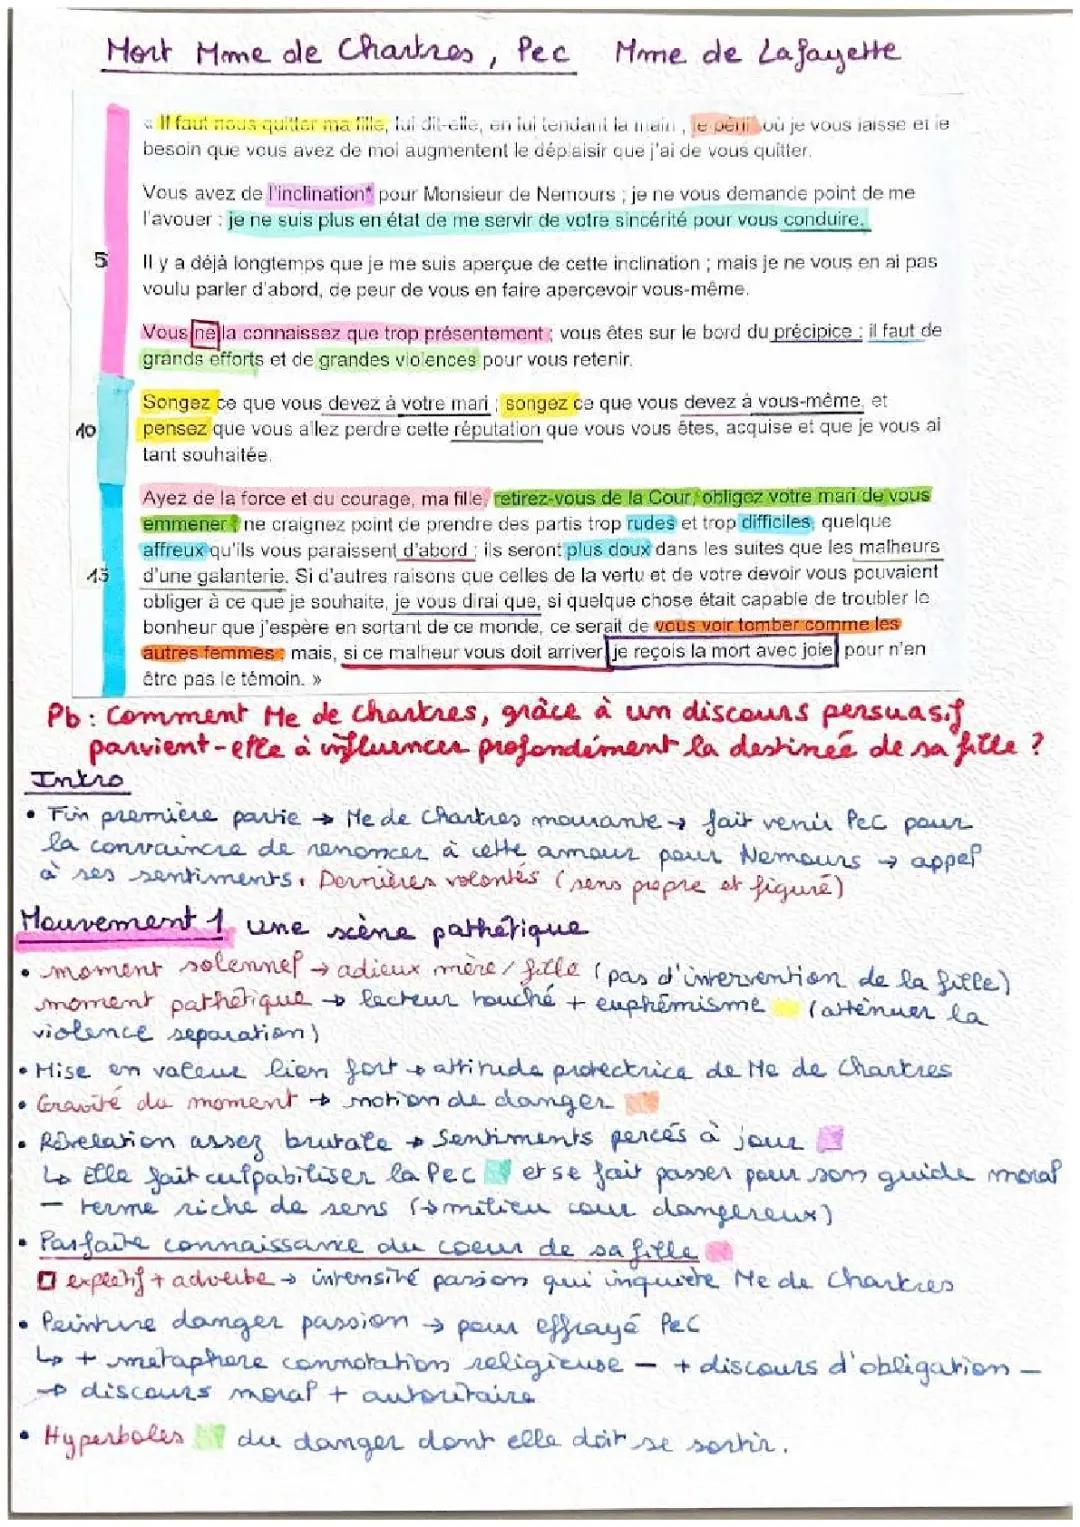 Mort Mme de Chartres, Pec Mme de Lafayette
« Il faut nous quitter ma fille, lui dit-elle, en lui tendant la main , le péril où je vous laisse et le
besoin que vous avez de moi augmentent le déplaisir que j'ai de vous quitter.
Vous avez de l'inclination* pour Monsieur de Nemours ; je ne vous demande point de me
l'avouer : je ne suis plus en état de me servir de votre sincérité pour vous conduire.
5 Il y a déjà longtemps que je me suis aperçue de cette inclination ; mais je ne vous en ai pas
voulu parler d'abord, de peur de vous en faire apercevoir vous-même.
Vous ne la connaissez que trop présentement ; vous êtes sur le bord du précipice : il faut de
grands efforts et de grandes violences pour vous retenir.
Songez ce que vous devez à votre mari ; songez ce que vous devez à vous-même, et
10 pensez que vous allez perdre cette réputation que vous vous êtes, acquise et que je vous ai
tant souhaitée.
Ayez de la force et du courage, ma fille, retirez-vous de la Cour, obligez votre mari de vous
emmener ; ne craignez point de prendre des partis trop rudes et trop difficiles, quelque
affreux qu'ils vous paraissent d'abord : ils seront plus doux dans les suites que les malheurs
15 d'une galanterie. Si d'autres raisons que celles de la vertu et de votre devoir vous pouvaient
obliger à ce que je souhaite, je vous dirai que, si quelque chose était capable de troubler le
bonheur que j'espère en sortant de ce monde, ce serait de vous voir tomber comme les
autres femmes ; mais, si ce malheur vous doit arriver, je reçois la mort avec joie, pour n'en
être pas le témoin. »
Pb : Comment Me de Chartres, grâce à un discours persuasif
parvient-elle à influencer profondément la destinée de sa fille ?
Intro
• Fin première partie → Me de Chartres mourante → fait venir PeC pour
la convaincre de renoncer à cette amour pour Nemours → appel
à ses sentiments. Dernières volontés (sens propre et figuré)
Mouvement 1 une scène pathétique
• moment solennel → adieux mère/fille (pas d'intervention de la fille)
moment pathétique → lecteur touché + euphémisme (atténuer la
violence separation)
• Mise en valeur lien fort → attitude protectrice de Me de Chartres
• Gravité du moment → notion de danger
• Révelation assez brutale → Sentiments percés à jour
↳ Elle fait culpabiliser la PeC et se fait passer pour son guide moral
— terme riche de sens (→ milieu cour dangereux)
• Parfaite connaissance du coeur de sa fille
□ expletif + adverbe → intensité passion qui inquiète Me de Chartres
• Peinture danger passion → pour effrayé PeC
↳ + métaphore connotation religieuse — + discours d'obligation —
→ discours moral + autoritaire
• Hyperboles du danger dont elle doit se sortir.